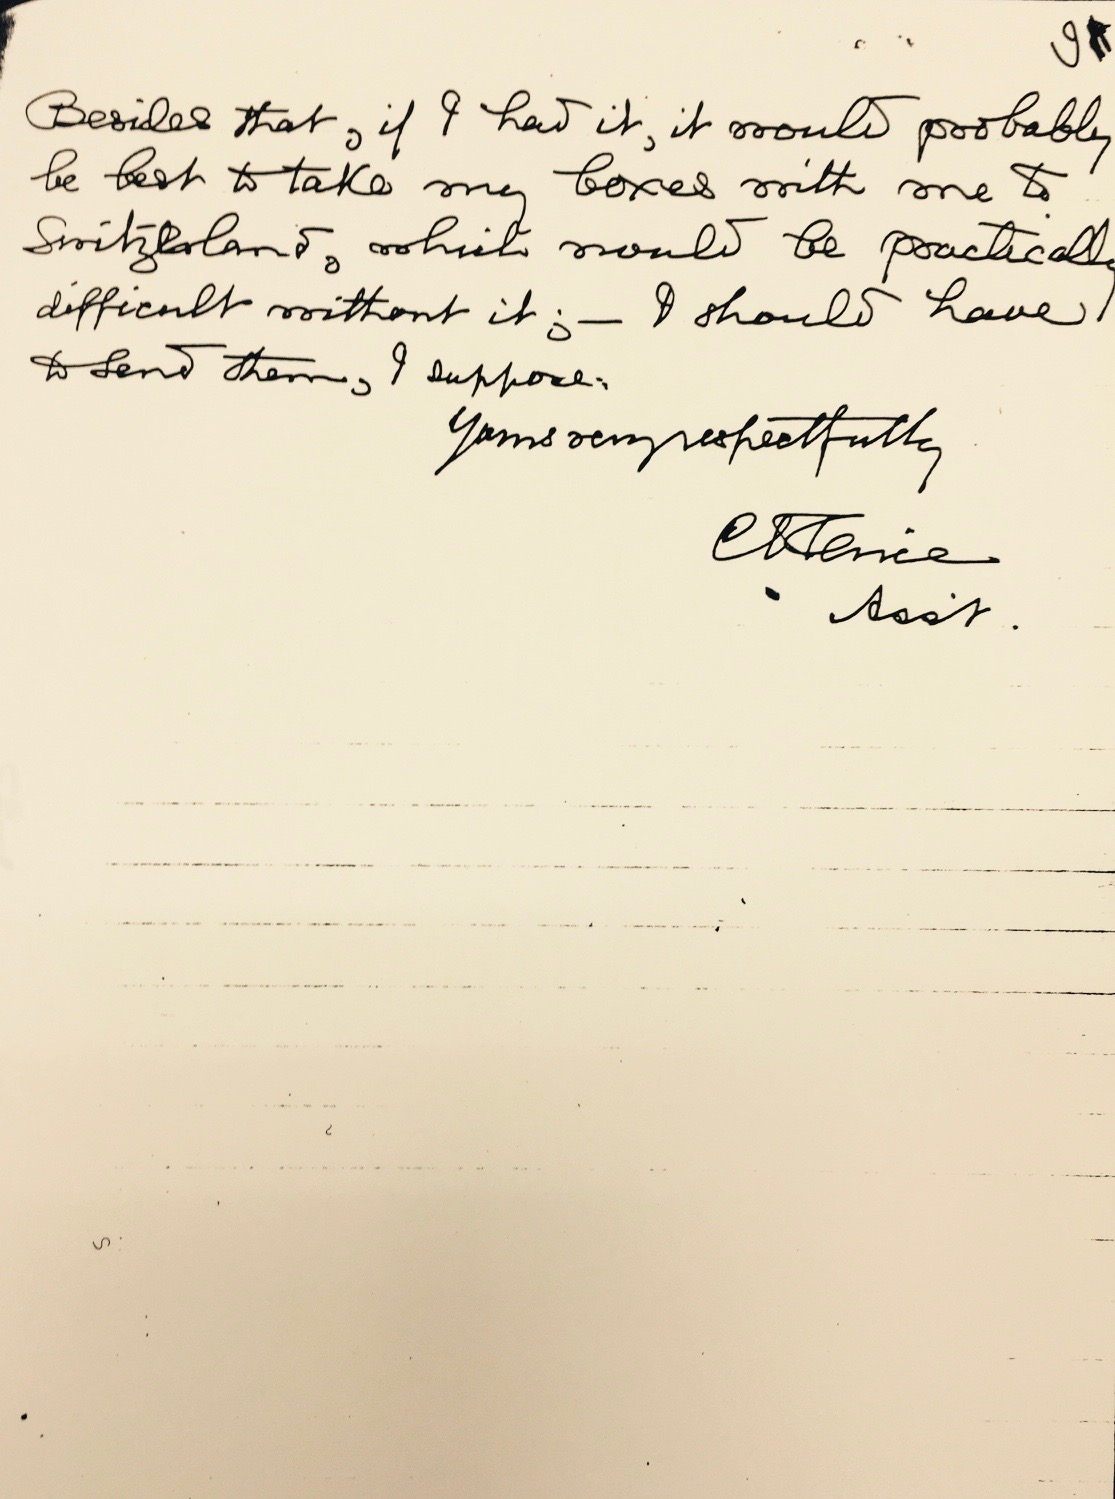 Besides that, if I had it, it would probably
be best to take my boxes with me to
Switzerland, which would be practically
difficult without it; — I should have
to send them, I suppose.
Yours very respectfully
Asst.